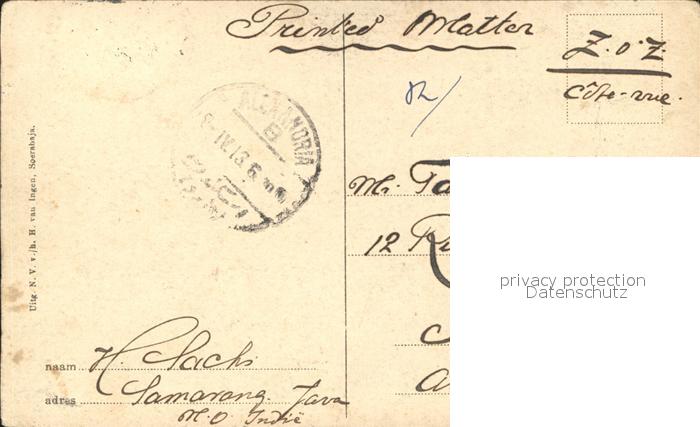 Printed Matter
Z.O.Z.
Côte-vue.
ALEXANDRIA
B
IV.13.6
Uitg. N. V. v./h. H. van Ingen, Soerabaja.
Mr.
12
privacy protection
Datenschutz
naam H. Sachs
adres Samarang. Java
N.O. Indië